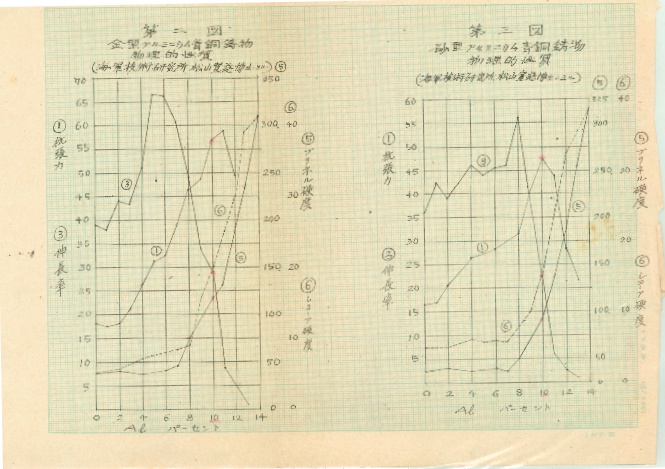 第二図
金型アルミニウム青銅鋳物
物理的性質
(海軍技術研究所 松山
⑤
70
65
60
55
50
45
40
35
30
25
20
15
10
5
① 抗張力
③ 伸長率
350
300
250
200
150
100
50
0
⑥
40
30
20
10
0
⑤ ブリネル硬度
⑥ 硬度
③
①
⑥
⑤
0 2 4 6 8 10 12 14
Al パーセント
第三図
砂型アルミニウム青銅鋳物
物理的性質
(海軍技術研究所 松山
⑤ ⑥
60
55
50
45
40
35
30
25
20
15
10
5
① 抗張力
③ 伸長率
300
250
200
150
100
50
0
40
20
10
0
⑤ ブリネル硬度
⑥ 硬度
③
①
⑥
⑤
0 2 4 6 8 10 12 14
Al パーセント